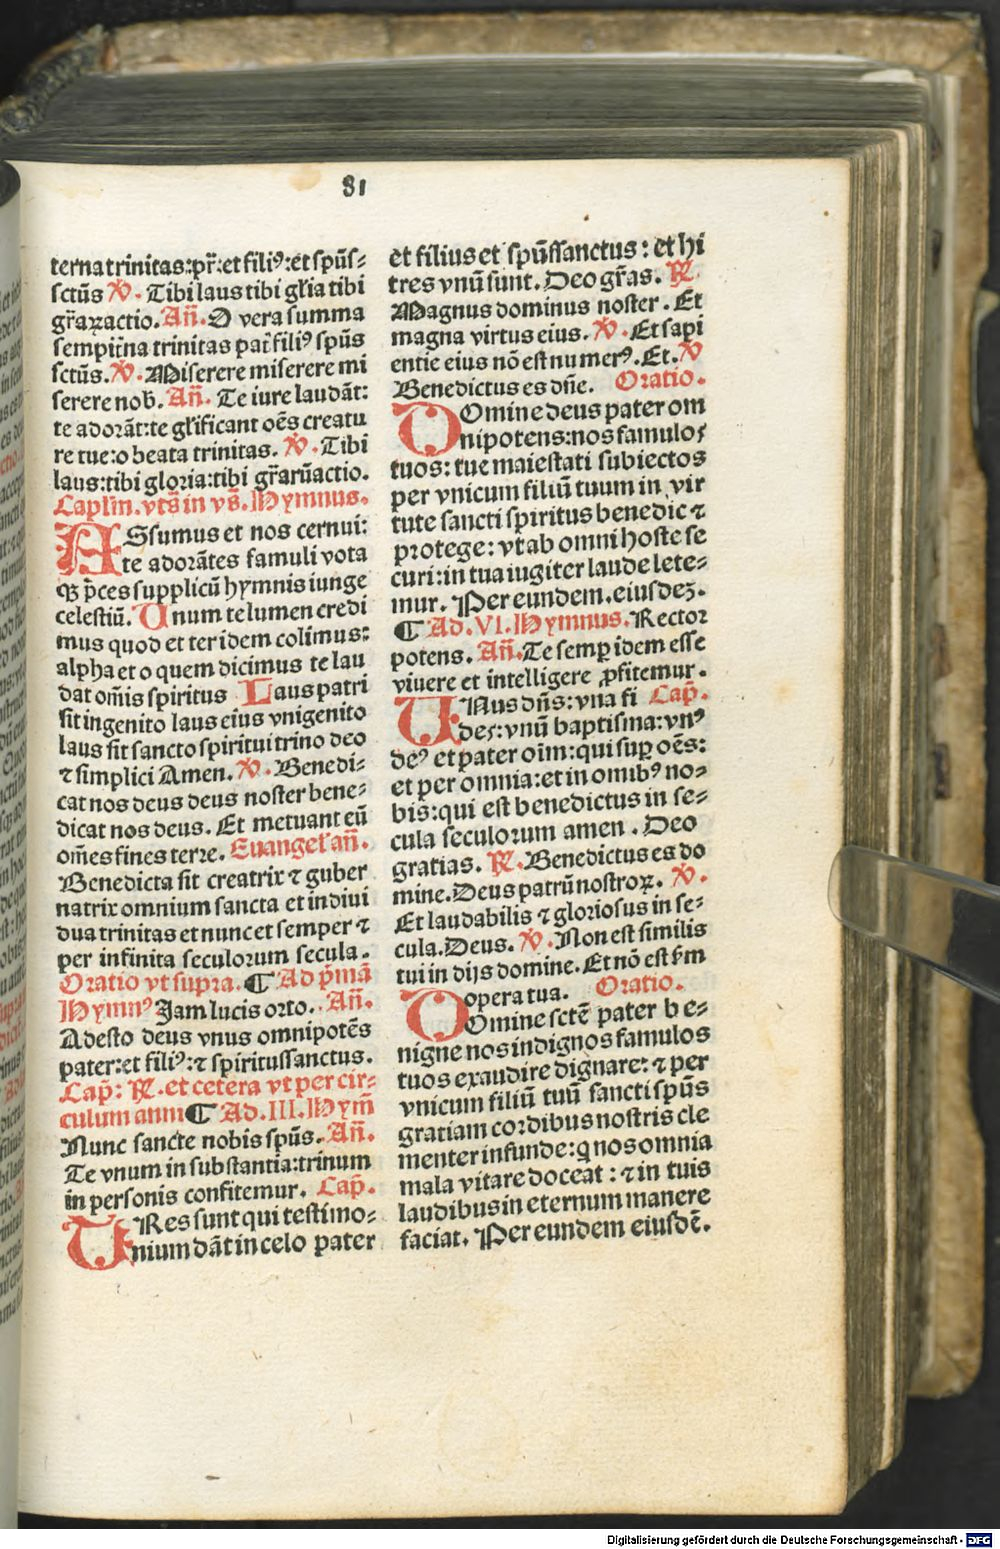 81
terna trinitas:pr̄:et filiꝰ:et spūs⸗
sctūs ℣. Tibi laus tibi gl̄ia tibi
gr̄aꝝactio. Añ. O vera summa
sempit̄na trinitas pat̄ filiꝰ spūs
sctūs. ℣. Miserere miserere mi
serere nob̄. Añ. Te iure laudāt:
te adorāt:te gl̄ificant oēs creatu
re tue:o beata trinitas. ℣. Tibi
laus:tibi gloria:tibi gr̄arūactio.
Caplm̄. vts̄ in vs̄. Hymnus.
ASsumus et nos cernui:
te adorātes famuli vota
qꝫ p̄ces supplicū hymnis iunge
celestiū. Unum te lumen credi
mus quod et ter idem colimus:
alpha et o quem dicimus te lau
dat om̄is spiritus Laus patri
sit ingenito laus eius vnigenito
laus sit sancto spiritui trino deo
⁊ simplici Amen. ℣. Benedi⸗
cat nos deus deus noster bene⸗
dicat nos deus. Et metuant eū
om̄es fines terre. Euangel̄ añ.
Benedicta sit creatrix ⁊ guber
natrix omnium sancta et indiui
dua trinitas et nunc et semper ⁊
per infinita seculorum secula.
Oratio vt supra. ¶ Ad p̄mā
Hymnꝰ Jam lucis orto. Añ.
Adesto deus vnus omnipotēs
pater:et filiꝰ:⁊ spiritussanctus.
Cap̄: ℟. et cetera vt per cir⸗
culum anni ¶ Ad. III. Hym̄
Nunc sancte nobis spūs. Añ.
Te vnum in substantia:trinum
in personis confitemur. Cap̄.
TRes sunt qui testimo⸗
nium dāt in celo pater
et filius et spūssanctus: et hi
tres vnū sunt. Deo gr̄as. ℟.
Magnus dominus noster. Et
magna virtus eius. ℣. Et sapi
entie eius nō est numerꝰ. Et. ℣
Benedictus es dn̄e. Oratio.
DOmine deus pater om
nipotens:nos famulos
tuos: tue maiestati subiectos
per vnicum filiū tuum in vir
tute sancti spiritus benedic ⁊
protege: vt ab omni hoste se
curi:in tua iugiter laude lete⸗
mur. Per eundem. eiusdeꝫ.
¶ Ad. VI. Hymnus. Rector
potens. Añ. Te semꝑ idem esse
viuere et intelligere ꝓfitemur.
UNus dn̄s: vna fi Cap̄.
des: vnū baptisma: vnꝰ
deꝰ et pater oīm:qui suꝑ oēs:
et per omnia:et in omībꝰ no⸗
bis:qui est benedictus in se⸗
cula seculorum amen. Deo
gratias. ℟. Benedictus es do
mine. Deus patrū nostroꝝ. ℣.
Et laudabilis ⁊ gloriosus in se⸗
cula. Deus. ℣. Non est similis
tui in dijs domine. Et nō est s̄m
opera tua. Oratio.
DOmine sctē pater be⸗
nigne nos indignos famulos
tuos exaudire dignare: ⁊ per
vnicum filiū tuū sancti spūs
gratiam cordibus nostris cle
menter infunde: q̄ nos omnia
mala vitare doceat: ⁊ in tuis
laudibus in eternum manere
faciat. Per eundem eiusdē.
Digitalisierung gefördert durch die Deutsche Forschungsgemeinschaft - DFG